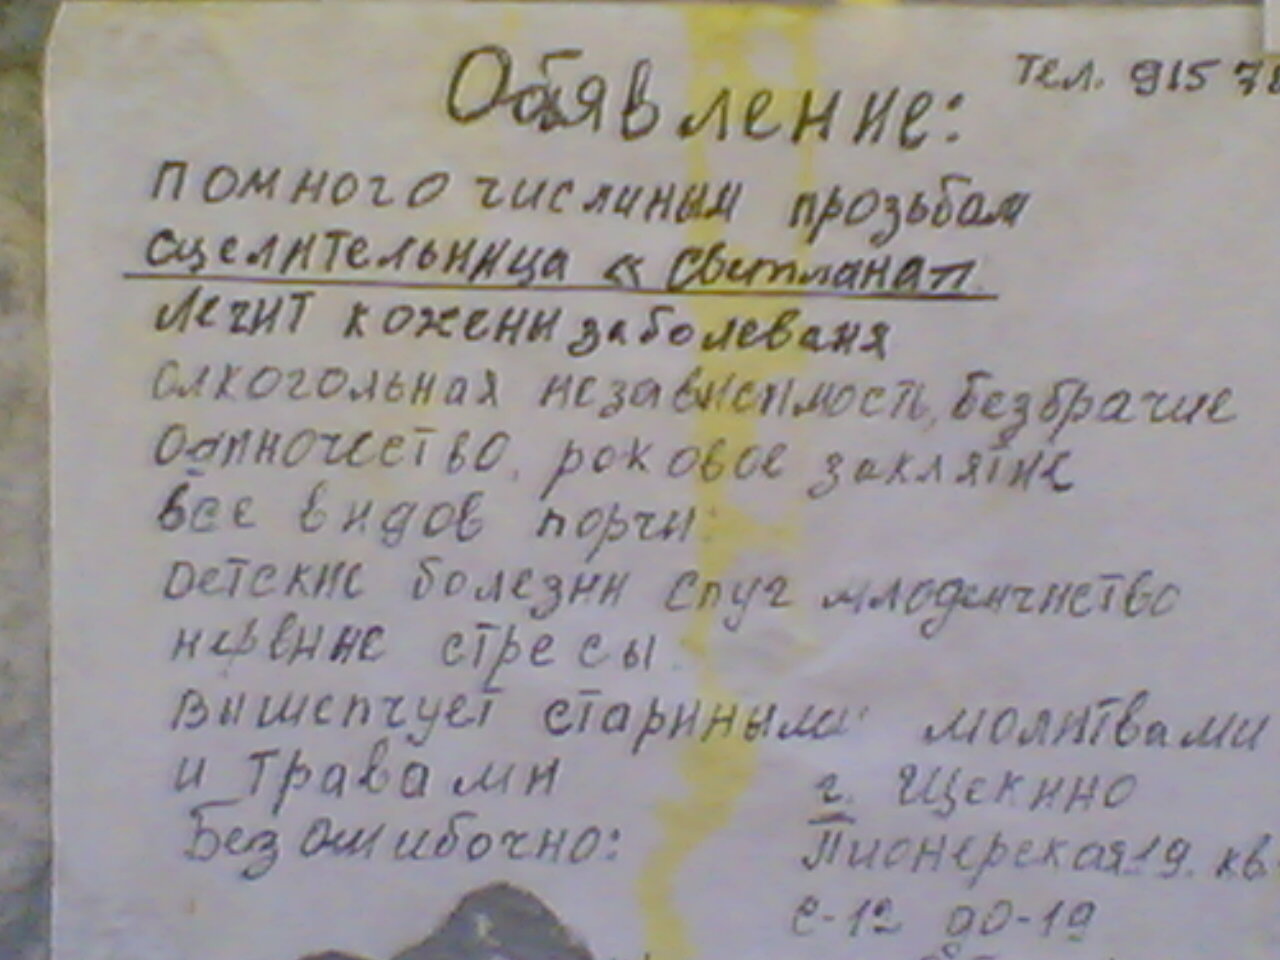 Обявление:
тел. 915 78
помного числиным прозьбам
сцелительница « Светлана"
лечит кожены заболеваня
алкогольная независимость, безбрачие
одпночество, роковое заклятие
все видов порчи:
детские болезни спуг младенчиство
нервние стресы.
Вишепчует старинымы молитвами
и травами
г. Щекино
Безошибочно:
Пионерская-19. кв
с-12 до-19